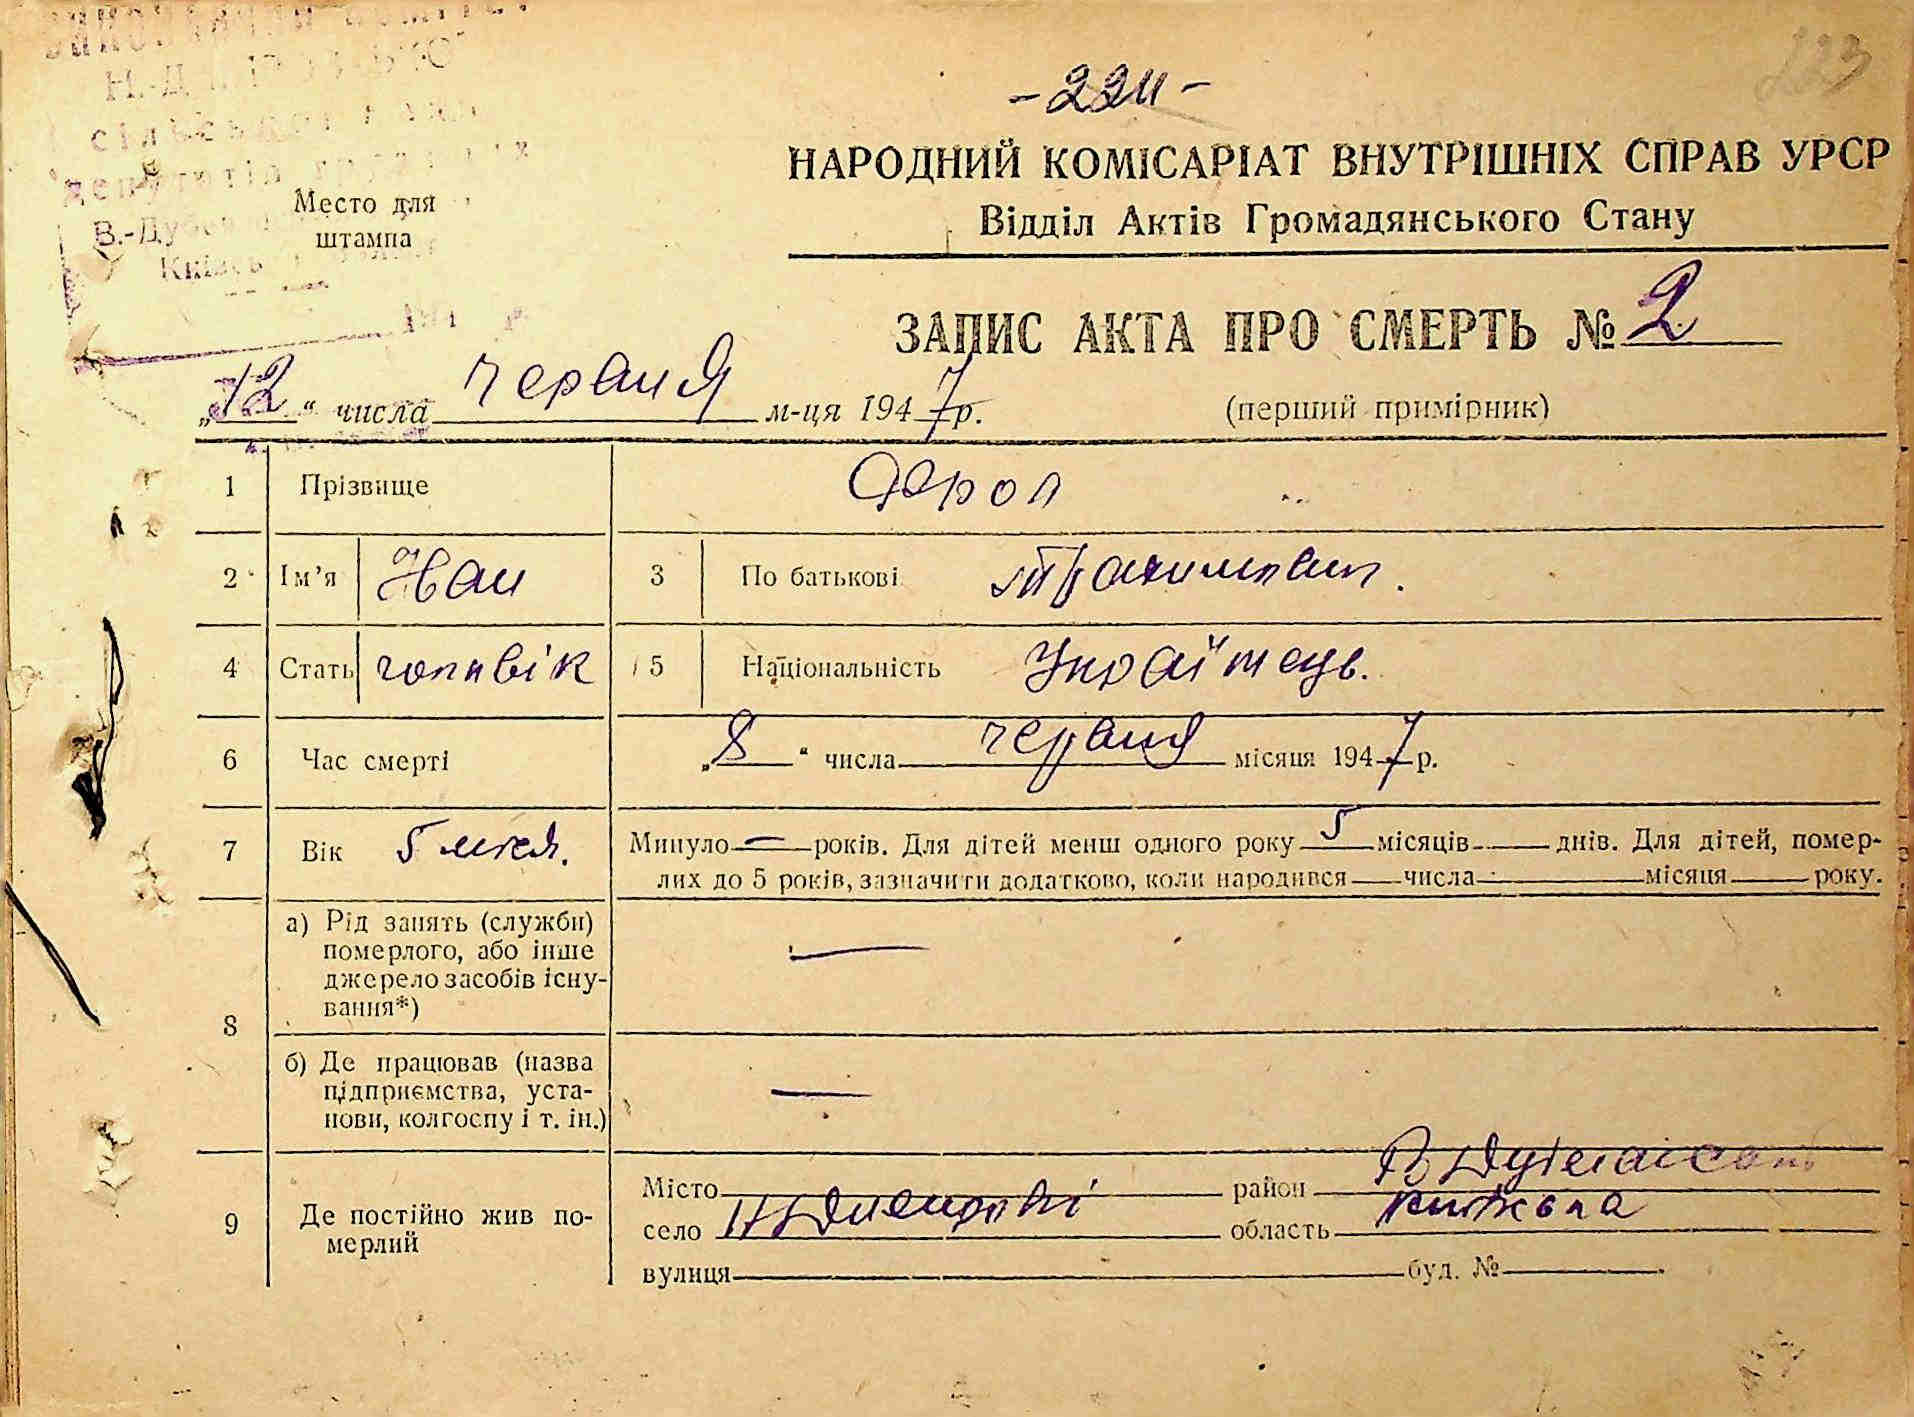 - 224 -
223
Место для
штампа
НАРОДНИЙ КОМІСАРІАТ ВНУТРІШНІХ СПРАВ УРСР
Відділ Актів Громадянського Стану
ЗАПИС АКТА ПРО СМЕРТЬ № 2
„12“ числа червня м-ця 1947 р. (перший примірник)
1 Прізвище
2 Ім’я Іван 3 По батькові
4 Стать чоловік 5 Національність Українець.
6 Час смерті „8“ числа червня місяця 1947 р.
7 Вік 5 міся. Минуло — років. Для дітей менш одного року 5 місяців днів. Для дітей, помер-
лих до 5 років, зазначити додатково, коли народився числа місяця року.
8 а) Рід занять (служби)
померлого, або інше
джерело засобів існу-
вання*) —
б) Де працював (назва
підприємства, уста-
нови, колгоспу і т. ін.) —
9 Де постійно жив по-
мерлий
Місто район
село область Київська
вулиця буд. №